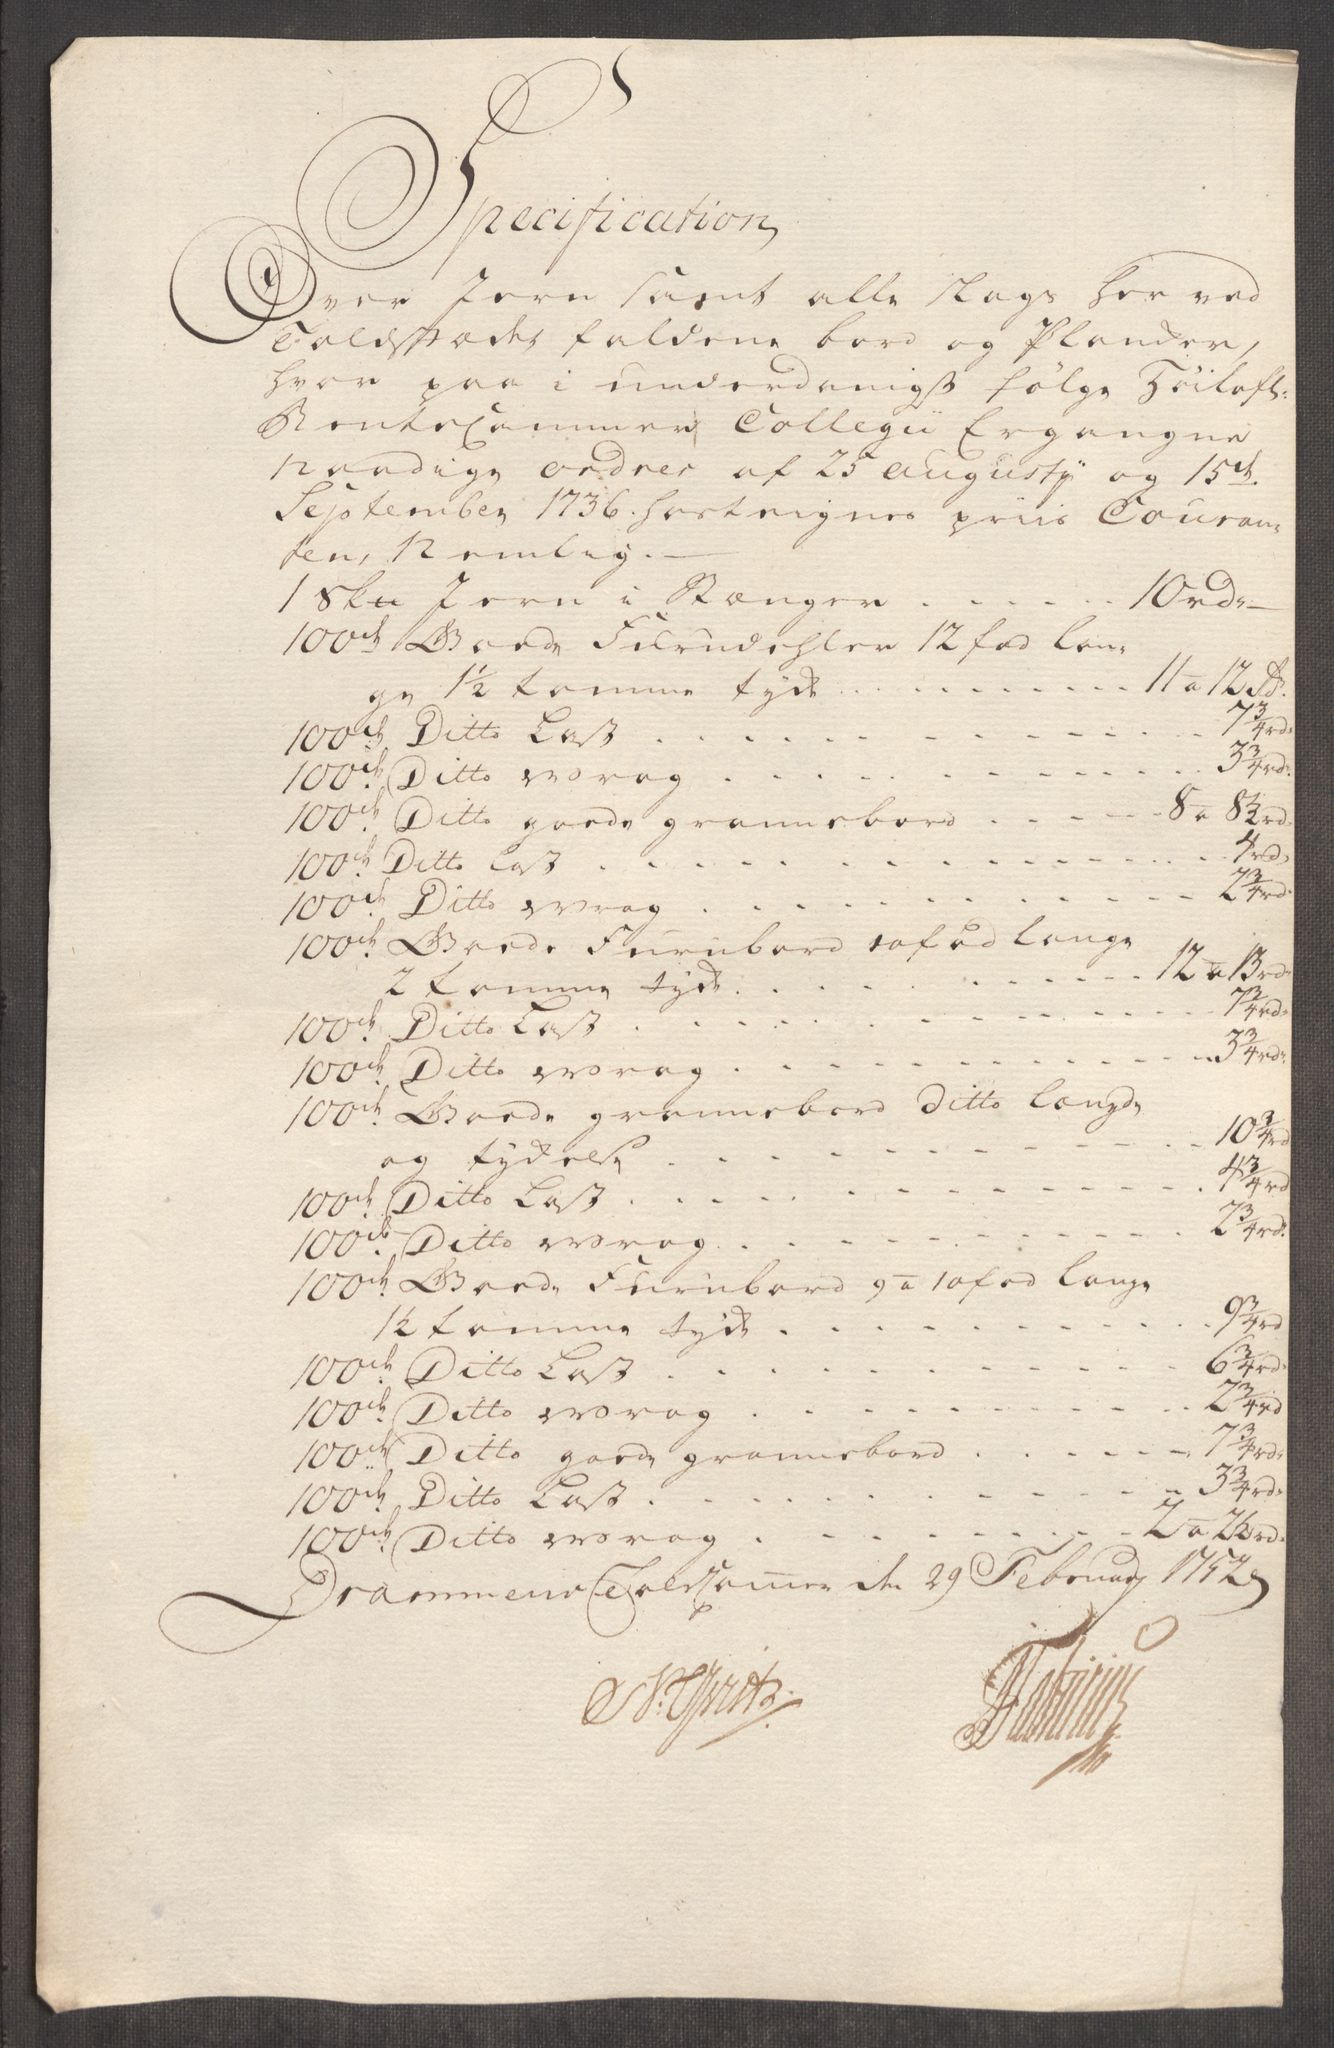 Specification
Over Jern samt alle slags her ved
Toldstædet faldene bord og Plancker,
hvor paa i underdanigst følge Höilofl:
RenteCammer Collegii Ergangne
naadige ordres af 25 augusty og 15de
September 1736. hosteignes priis Couran-
ten, Nemlig.
1 Sku Jern i Stænger . . . . . 10 rd:
100de Goede Furudehler 12 fod lan-
ge 1½ tomme tyck . . . . . 11 a 12 rd.
100de Ditto Last . . . . . 7¾ rd:
100de Ditto wrag . . . . . 3¾ rd:
100de Ditto goede grannebord . . . . . 8 a 8½ rd:
100de Ditto Last . . . . . 4 rd:
100de Ditto wrag . . . . . 2¾ rd:
100de Goede Furubord 10 fod lange
2 tomme tyck . . . . . 12 a 13 rd:
100de Ditto Last . . . . . 7¾ rd:
100de Ditto wrag . . . . . 3¾ rd:
100de Goede grannebord Ditto længde
og tyckelse . . . . . 10¾ rd
100de Ditto Last . . . . . 4¾ rd
100de Ditto wrag . . . . . 2¾ rd:
100de Goede Furubord 9 a 10 fod lange
1½ tomme tyck . . . . . 9¾ rd
100de Ditto Last . . . . . 6¾ rd:
100de Ditto wrag . . . . . 2¾ rd
100de Ditto goede grannebord . . . . . 7¾ rd:
100de Ditto Last . . . . . 3¾ rd:
100de Ditto wrag . . . . . 2 a 2½ rd:
Drammens ToldCammer den 29 February 1752